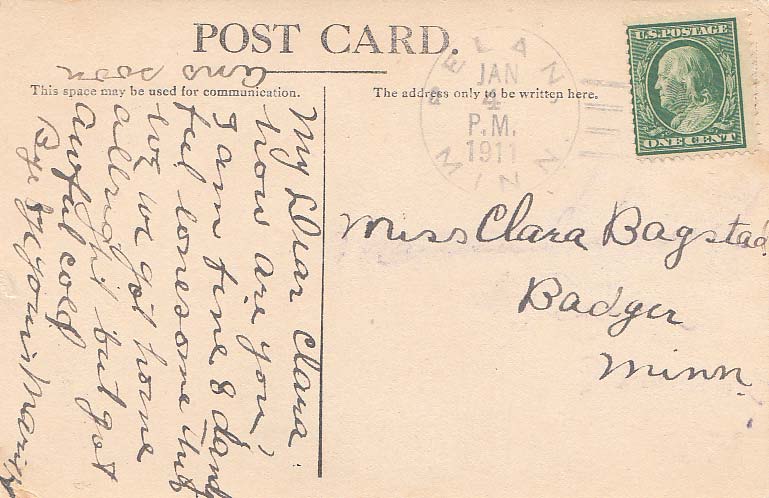 POST CARD.
This space may be used for communication.
The address only to be written here.
PELAN
MINN.
JAN
4
P.M.
1911
U.S. POSTAGE
ONE CENT
Miss Clara Bagstad
Badger
Minn.
My Dear Clara
how are you,
I am fine & dandy
ful lonesome
we got home
allright but got
awful cold
Bye Bye yours
ans soon